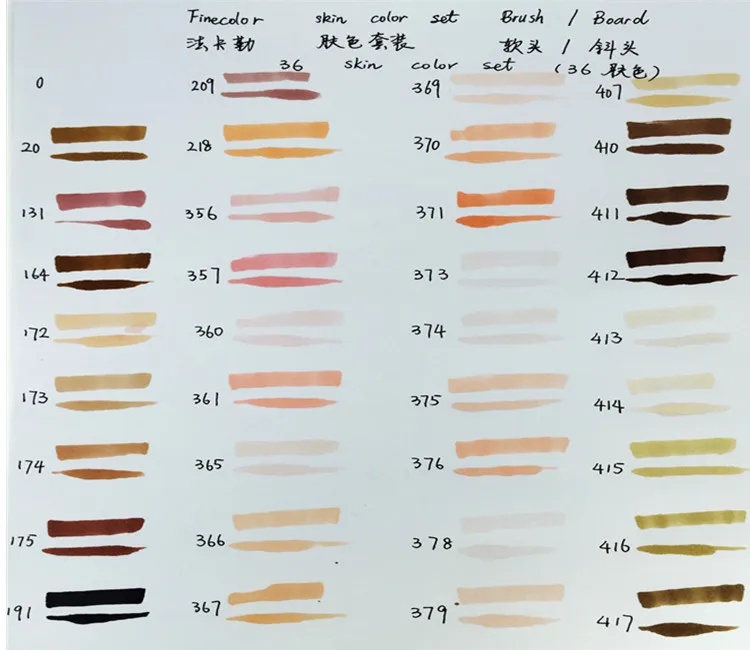 Finecolor skin color set Brush / Board
法卡勒 肤色套装 软头 / 斜头
36 skin color set (36 肤色)
0 209 369 407
20 218 370 410
131 356 371 411
164 357 373 412
172 360 374 413
173 361 375 414
174 365 376 415
175 366 378 416
191 367 379 417